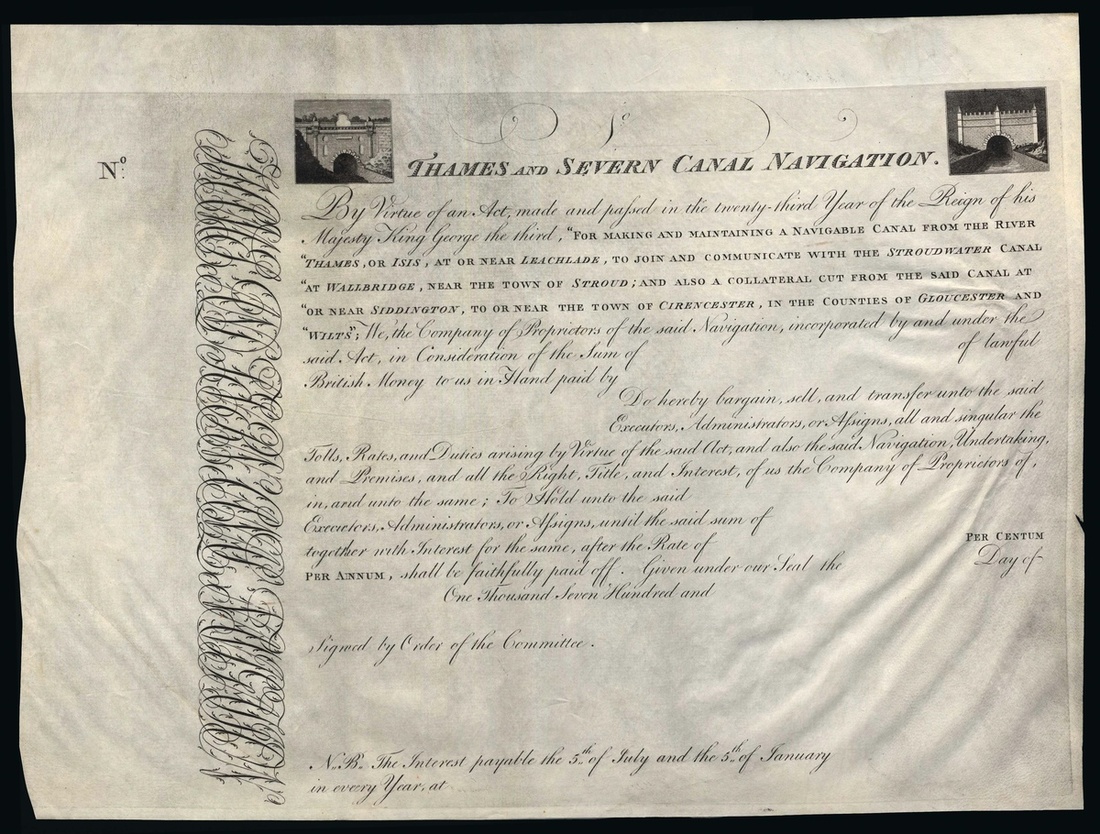 No.
THAMES AND SEVERN CANAL NAVIGATION.
By Virtue of an Act, made and paſsed in the twenty-third Year of the Reign of his
Majesty King George the third, "FOR MAKING AND MAINTAINING A NAVIGABLE CANAL FROM THE RIVER
"THAMES, OR ISIS, AT OR NEAR LEACHLADE, TO JOIN AND COMMUNICATE WITH THE STROUDWATER CANAL
"AT WALLBRIDGE, NEAR THE TOWN OF STROUD; AND ALSO A COLLATERAL CUT FROM THE SAID CANAL AT
"OR NEAR SIDDINGTON, TO OR NEAR THE TOWN OF CIRENCESTER, IN THE COUNTIES OF GLOUCESTER AND
"WILTS"; We, the Company of Proprietors of the said Navigation, incorporated by and under the
said Act, in Consideration of the Sum of of lawful
British Money to us in Hand paid by
Do hereby bargain, sell, and transfer unto the said
Executors, Administrators, or Aſsigns, all and singular the
Tolls, Rates, and Duties arising by Virtue of the said Act; and also the said Navigation, Undertaking,
and Premises, and all the Right, Title, and Interest, of us the Company of Proprietors of,
in, and unto the same; To Hold unto the said
Executors, Administrators, or Aſsigns, until the said sum of
together with Interest for the same, after the Rate of PER CENTUM
PER ANNUM, shall be faithfully paid off. Given under our Seal the Day of
One Thousand Seven Hundred and
Signed by Order of the Committee.
N.B. The Interest payable the 5th of July and the 5th of January
in every Year, at